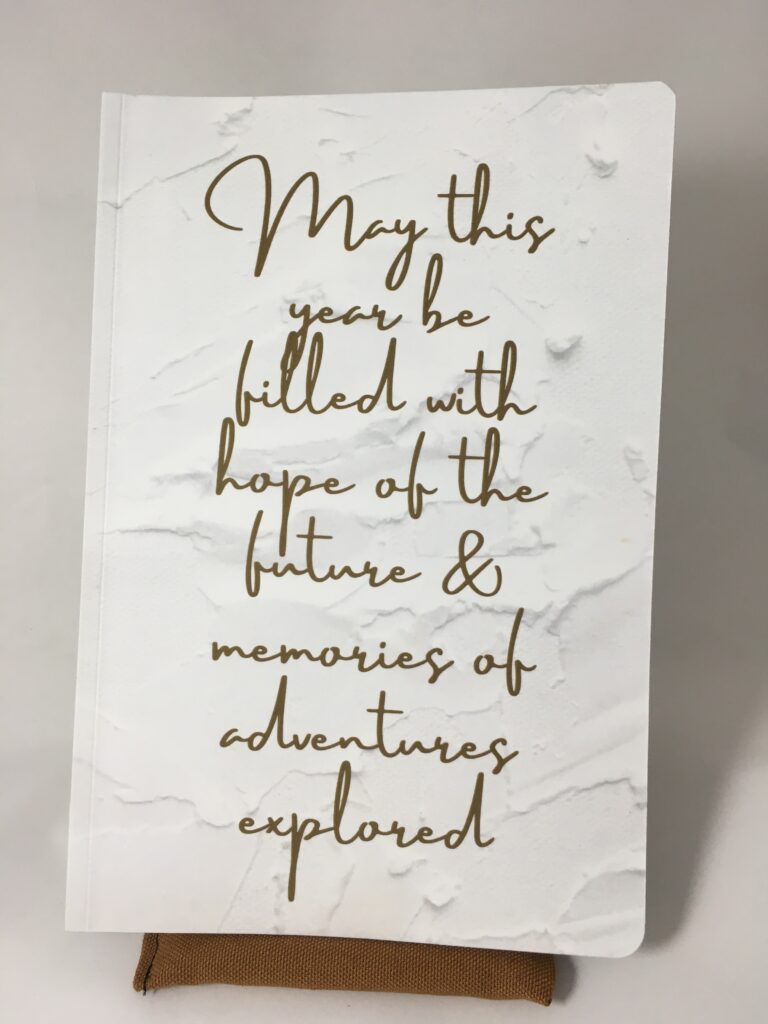 May this
year be
filled with
hope of the
future &
memories of
adventures
explored